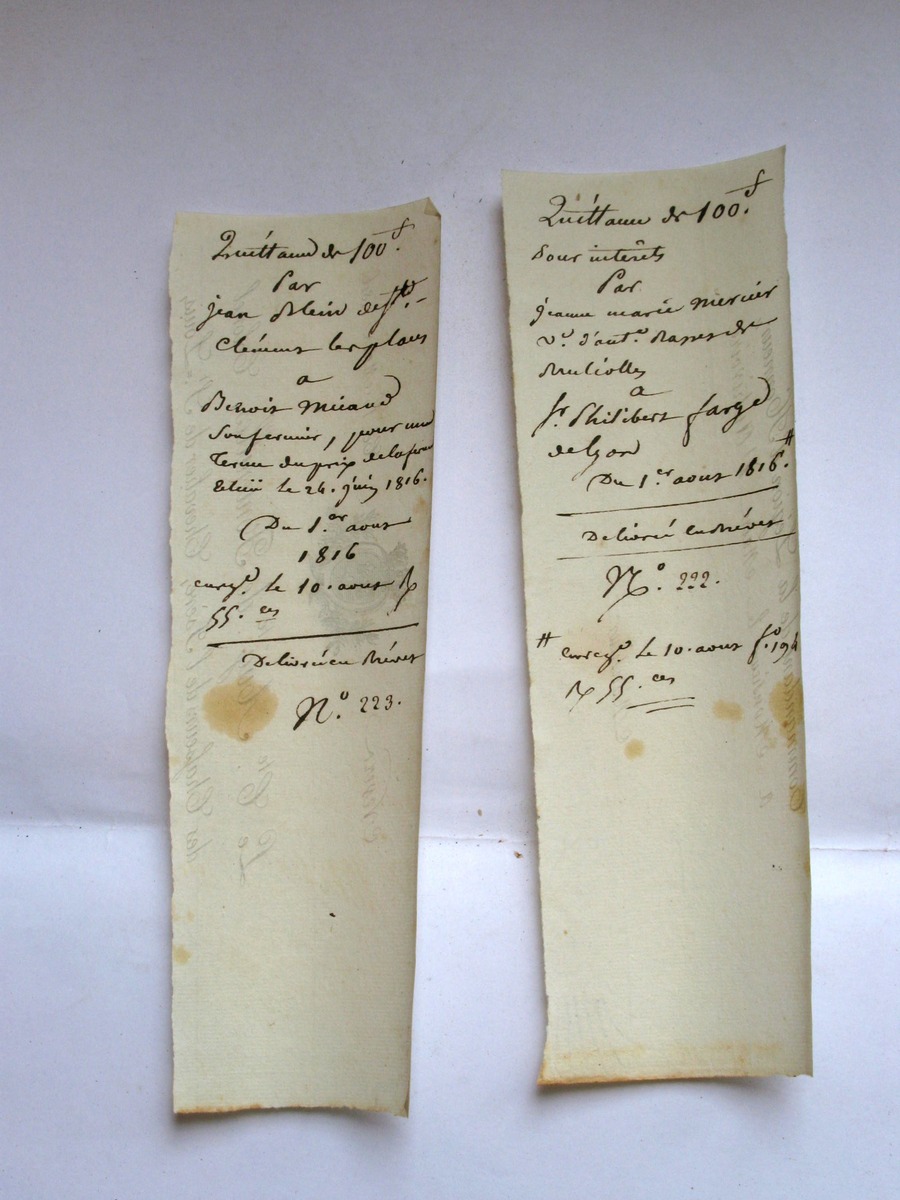 Quittance de 100.f
Par
jean Blein de St.
Clément les places
a
Benoit Micaud
Son fermier, pour un
Terme du prix de la ferme
Echu le 24. juin 1816.
Du 1.er aout
1816
enreg.é le 10. aout R
55. ces
Delivré en Brévet
N.o 223.
Quittance de 100.f
Pour intérêts
Par
jeanne marie Mercier
v.e d'ant.e
de
Brulioles
a
Sr. Philibert farge
de Lyon
Du 1.er aout 1816. #
Delivré en Brévet
N.o 222.
# enreg.é le 10. aout f.o 194
R 55. ces